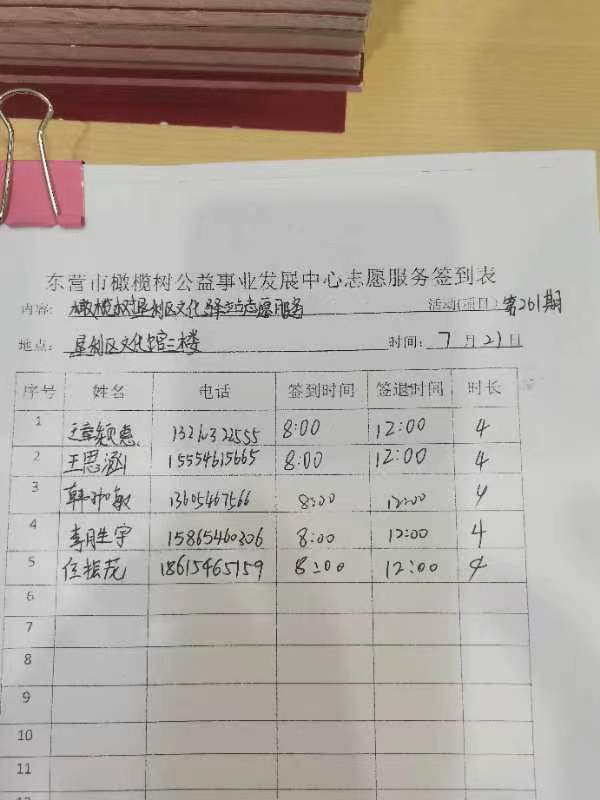 东营市橄榄树公益事业发展中心志愿服务签到表
内容: 橄榄树垦利区文化驿站志愿服务 活动(项目) 第201期
地点: 垦利区文化馆二楼 时间: 7月21日
序号 姓名 电话 签到时间 签退时间 时长
1 8:00 12:00 4
2 王思涵 15554615665 8:00 12:00 4
3 13605467566 8:00 12:00 4
4 李胜宇 15865460306 8:00 12:00 4
5 任振茂 18615465159 8:00 12:00 4
6
7
8
9
10
11